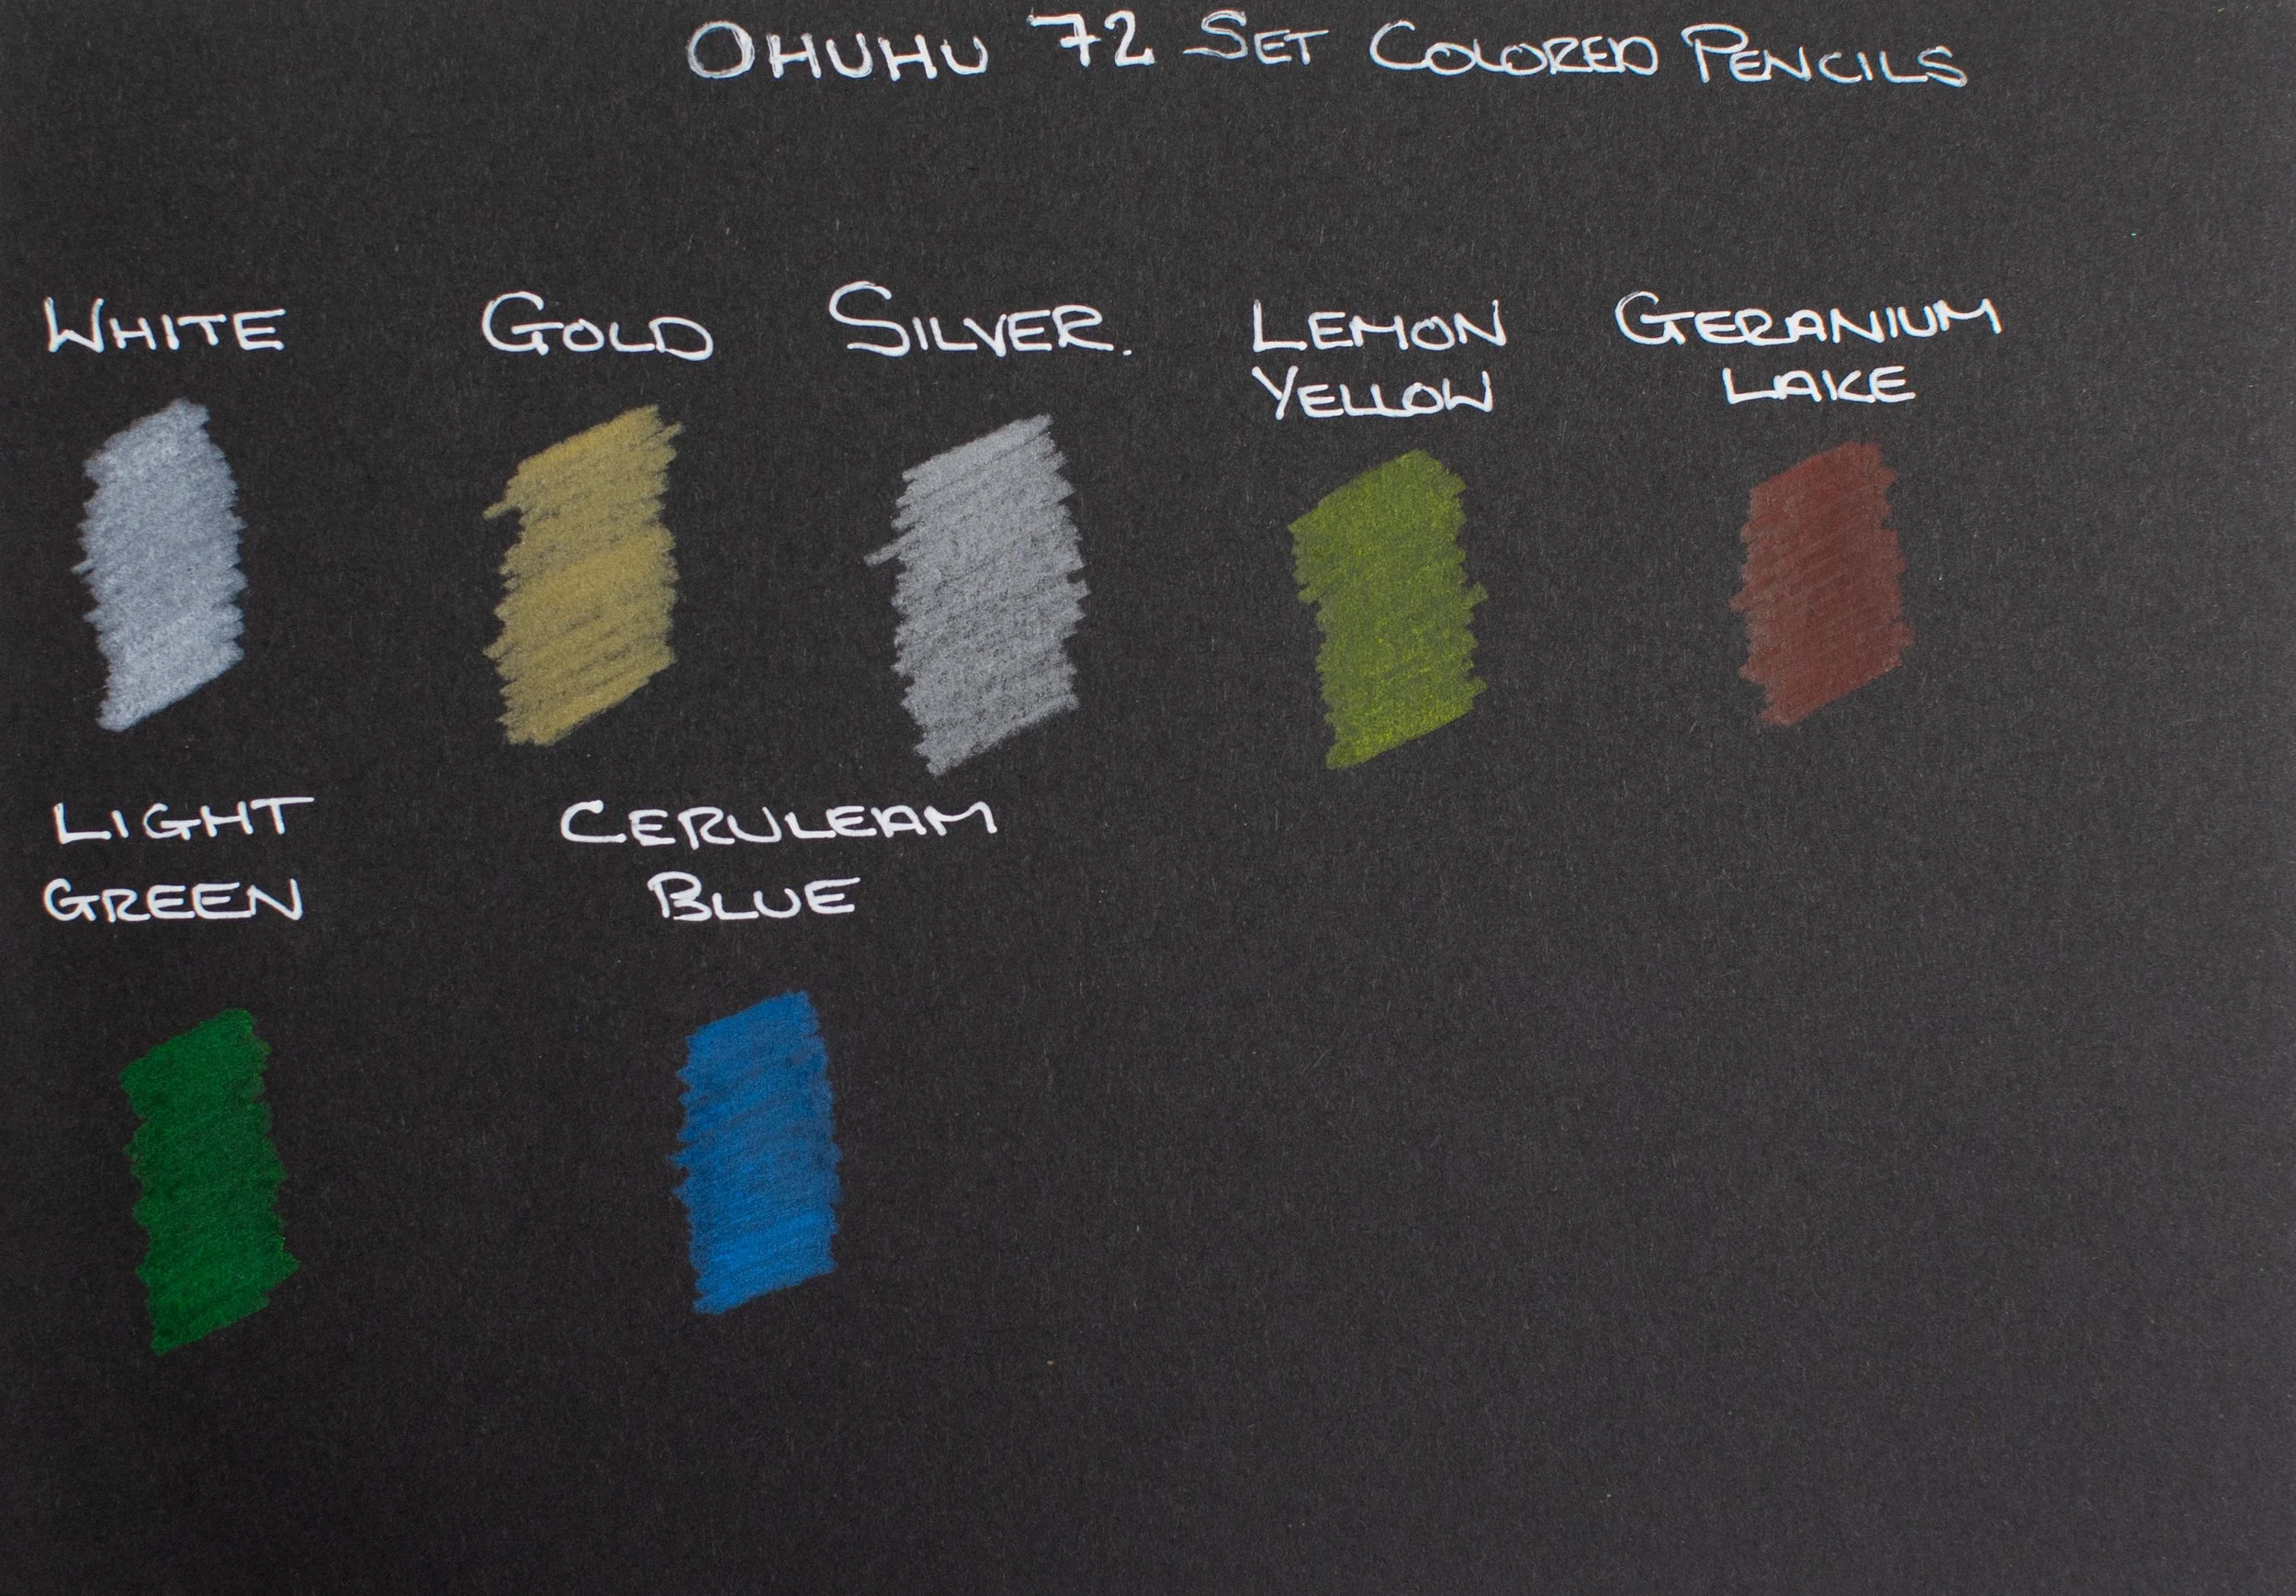 OHUHU 72 SET COLORED PENCILS
WHITE GOLD SILVER. LEMON YELLOW GERANIUM LAKE
LIGHT GREEN CERULEAM BLUE